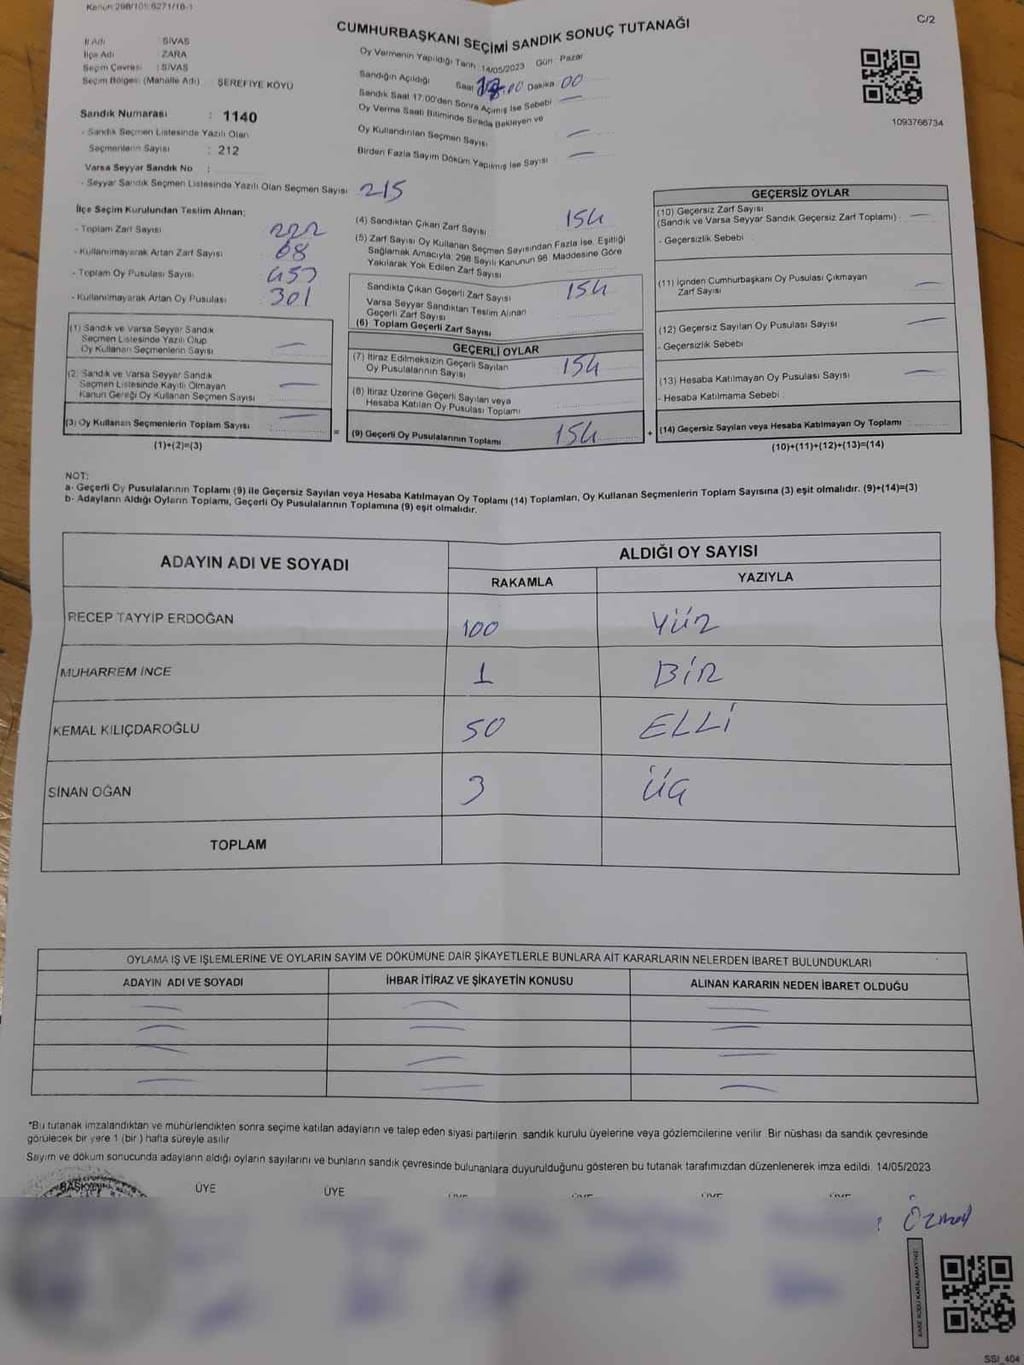 Kanun 298/105 6271/18-1
CUMHURBAŞKANI SEÇİMİ SANDIK SONUÇ TUTANAĞI
C/2
İl Adı : SİVAS
İlçe Adı : ZARA
Seçim Çevresi : SİVAS
Seçim Bölgesi (Mahalle Adı) : ŞEREFİYE KÖYÜ
Oy Vermenin Yapıldığı Tarih 14/05/2023 Gün Pazar
Sandığın Açıldığı Saat Dakika 00
Sandık Saat 17:00'den Sonra Açılmış İse Sebebi —
Oy Verme Saati Bitiminde Sırada Bekleyen ve
Oy Kullandırılan Seçmen Sayısı —
Birden Fazla Sayım Döküm Yapılmış İse Sayısı —
1093766734
Sandık Numarası : 1140
- Sandık Seçmen Listesinde Yazılı Olan
Seçmenlerin Sayısı : 212
Varsa Seyyar Sandık No :
- Seyyar Sandık Seçmen Listesinde Yazılı Olan Seçmen Sayısı 215
İlçe Seçim Kurulundan Teslim Alınan;
- Toplam Zarf Sayısı 222
- Kullanılmayarak Artan Zarf Sayısı 68
- Toplam Oy Pusulası Sayısı
- Kullanılmayarak Artan Oy Pusulası 301
(1) Sandık ve Varsa Seyyar Sandık
Seçmen Listesinde Yazılı Olup
Oy Kullanan Seçmenlerin Sayısı —
(2) Sandık ve Varsa Seyyar Sandık
Seçmen Listesinde Kayıtlı Olmayan
Kanun Gereği Oy Kullanan Seçmen Sayısı —
(3) Oy Kullanan Seçmenlerin Toplam Sayısı —
(1)+(2)=(3)
(4) Sandıktan Çıkan Zarf Sayısı 154
(5) Zarf Sayısı Oy Kullanan Seçmen Sayısından Fazla İse, Eşitliği
Sağlamak Amacıyla, 298 Sayılı Kanunun 98. Maddesine Göre
Yakılarak Yok Edilen Zarf Sayısı
Sandıkta Çıkan Geçerli Zarf Sayısı 154
Varsa Seyyar Sandıktan Teslim Alınan
Geçerli Zarf Sayısı
(6) Toplam Geçerli Zarf Sayısı
GEÇERLİ OYLAR
(7) İtiraz Edilmeksizin Geçerli Sayılan
Oy Pusulalarının Sayısı 154
(8) İtiraz Üzerine Geçerli Sayılan veya
Hesaba Katılan Oy Pusulası Toplamı
= (9) Geçerli Oy Pusulalarının Toplamı 154 +
GEÇERSİZ OYLAR
(10) Geçersiz Zarf Sayısı
(Sandık ve Varsa Seyyar Sandık Geçersiz Zarf Toplamı) —
- Geçersizlik Sebebi
(11) İçinden Cumhurbaşkanı Oy Pusulası Çıkmayan
Zarf Sayısı —
(12) Geçersiz Sayılan Oy Pusulası Sayısı —
- Geçersizlik Sebebi
(13) Hesaba Katılmayan Oy Pusulası Sayısı —
- Hesaba Katılmama Sebebi
(14) Geçersiz Sayılan veya Hesaba Katılmayan Oy Toplamı
(10)+(11)+(12)+(13)=(14)
NOT:
a- Geçerli Oy Pusulalarının Toplamı (9) ile Geçersiz Sayılan veya Hesaba Katılmayan Oy Toplamı (14) Toplamları, Oy Kullanan Seçmenlerin Toplam Sayısına (3) eşit olmalıdır. (9)+(14)=(3)
b- Adayların Aldığı Oyların Toplamı, Geçerli Oy Pusulalarının Toplamına (9) eşit olmalıdır.
ADAYIN ADI VE SOYADI
ALDIĞI OY SAYISI
RAKAMLA YAZIYLA
RECEP TAYYİP ERDOĞAN 100 YÜZ
MUHARREM İNCE 1 BİR
KEMAL KILIÇDAROĞLU 50 ELLİ
SİNAN OĞAN 3 ÜÇ
TOPLAM
OYLAMA İŞ VE İŞLEMLERİNE VE OYLARIN SAYIM VE DÖKÜMÜNE DAİR ŞİKAYETLERLE BUNLARA AİT KARARLARIN NELERDEN İBARET BULUNDUKLARI
ADAYIN ADI VE SOYADI İHBAR İTİRAZ VE ŞİKAYETİN KONUSU ALINAN KARARIN NEDEN İBARET OLDUĞU
— — —
— — —
— — —
— — —
*Bu tutanak imzalandıktan ve mühürlendikten sonra seçime katılan adayların ve talep eden siyasi partilerin sandık kurulu üyelerine veya gözlemcilerine verilir. Bir nüshası da sandık çevresinde
görülecek bir yere 1 (bir ) hafta süreyle asılır
Sayım ve döküm sonucunda adayların aldığı oyların sayılarını ve bunların sandık çevresinde bulunanlara duyurulduğunu gösteren bu tutanak tarafımızdan düzenlenerek imza edildi. 14/05/2023
BAŞKAN ÜYE ÜYE
SSI_404